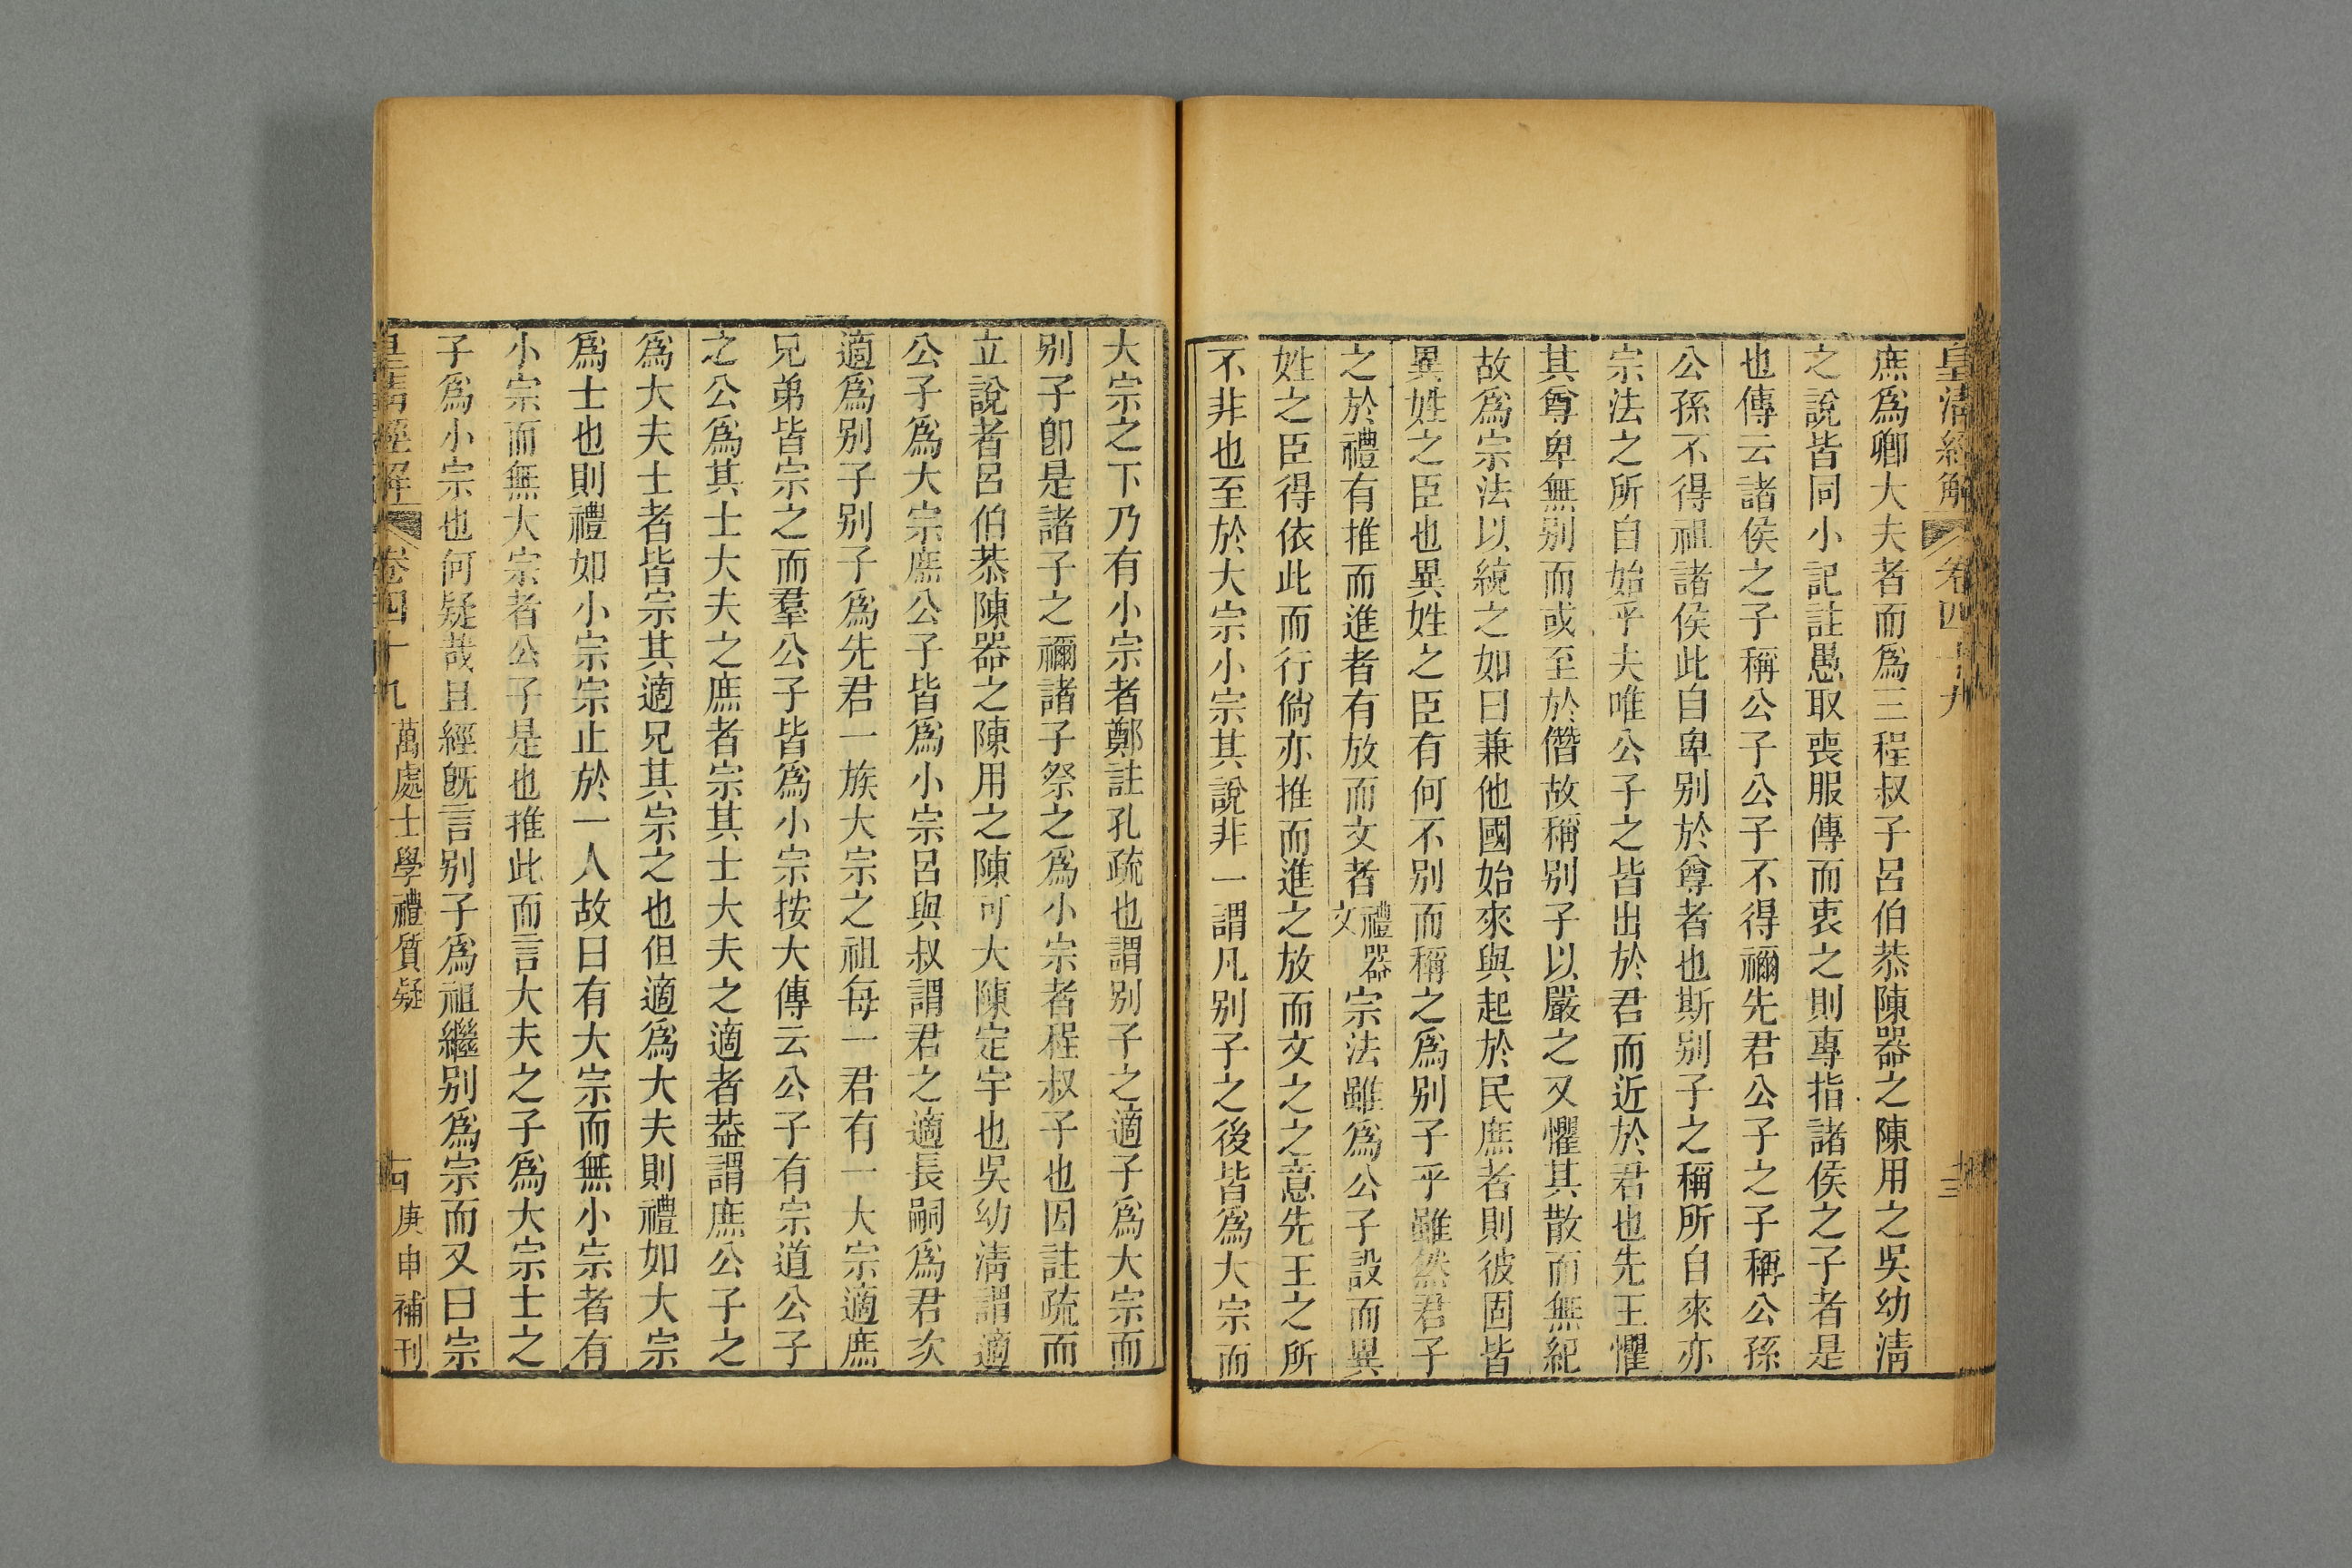 皇清經解 卷四十九 十三
庶爲卿大夫者而爲三程叔子呂伯恭陳器之陳用之吳幼清
之說皆同小記註愚取喪服傳而衷之則專指諸侯之子者是
也傳云諸侯之子稱公子公子不得禰先君公子之子稱公孫
公孫不得祖諸侯此自卑別於尊者也斯別子之稱所自來亦
宗法之所自始乎夫唯公子之皆出於君而近於君也先王懼
其尊卑無別而或至於僭故稱別子以嚴之又懼其散而無紀
故爲宗法以統之如曰兼他國始來與起於民庶者則彼固皆
異姓之臣也異姓之臣有何不別而稱之爲別子乎雖然君子
之於禮有推而進者有放而文者禮器文宗法雖爲公子設而異
姓之臣得依此而行倘亦推而進之放而文之之意先王之所
不非也至於大宗小宗其說非一謂凡別子之後皆爲大宗而
大宗之下乃有小宗者鄭註孔疏也謂別子之適子爲大宗而
別子卽是諸子之禰諸子祭之爲小宗者程叔子也因註疏而
立說者呂伯恭陳器之陳用之陳可大陳定宇也吳幼清謂適
公子爲大宗庶公子皆爲小宗呂與叔謂君之適長嗣爲君次
適爲別子別子爲先君一族大宗之祖每一君有一大宗適庶
兄弟皆宗之而羣公子皆爲小宗按大傳云公子有宗道公子
之公爲其士大夫之庶者宗其士大夫之適者葢謂庶公子之
爲大夫士者皆宗其適兄其宗之也但適爲大夫則禮如大宗
爲士也則禮如小宗宗止於一人故曰有大宗而無小宗者有
小宗而無大宗者公子是也推此而言大夫之子爲大宗士之
子爲小宗也何疑哉且經旣言別子爲祖繼別爲宗而又曰宗
皇清經解 卷四十九 萬處士學禮質疑 十四 庚申補刊